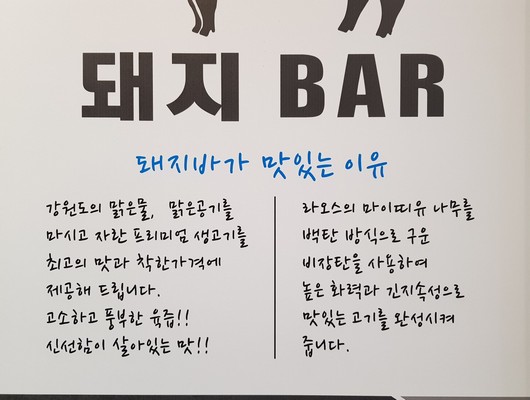 돼지 BAR
돼지바가 맛있는 이유
강원도의 맑은물, 맑은공기를
마시고 자란 프리미엄 생고기를
최고의 맛과 착한가격에
제공해 드립니다.
고소하고 풍부한 육즙!!
신선함이 살아있는 맛!!
라오스의 마이띠유 나무를
백탄 방식으로 구운
비장탄을 사용하여
높은 화력과 긴지속성으로
맛있는 고기를 완성시켜
줍니다.